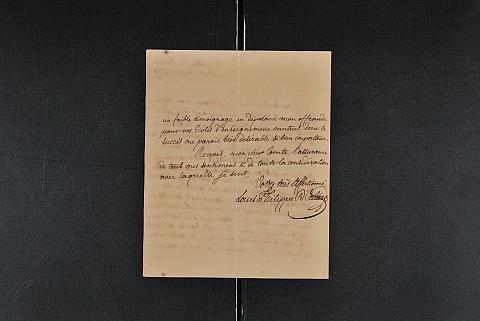 un faible témoignage en dévolant mon offrande
pour vos Ecoles d'enseignement mutuel dont le
succès me parait bien désirable & bien important.
Recevez, mon cher Comte, l'assurance
de tous mes sentiments & de toute la considération
avec laquelle je suis,
Votre très affectionné,
Louis Philippe D'Orléans